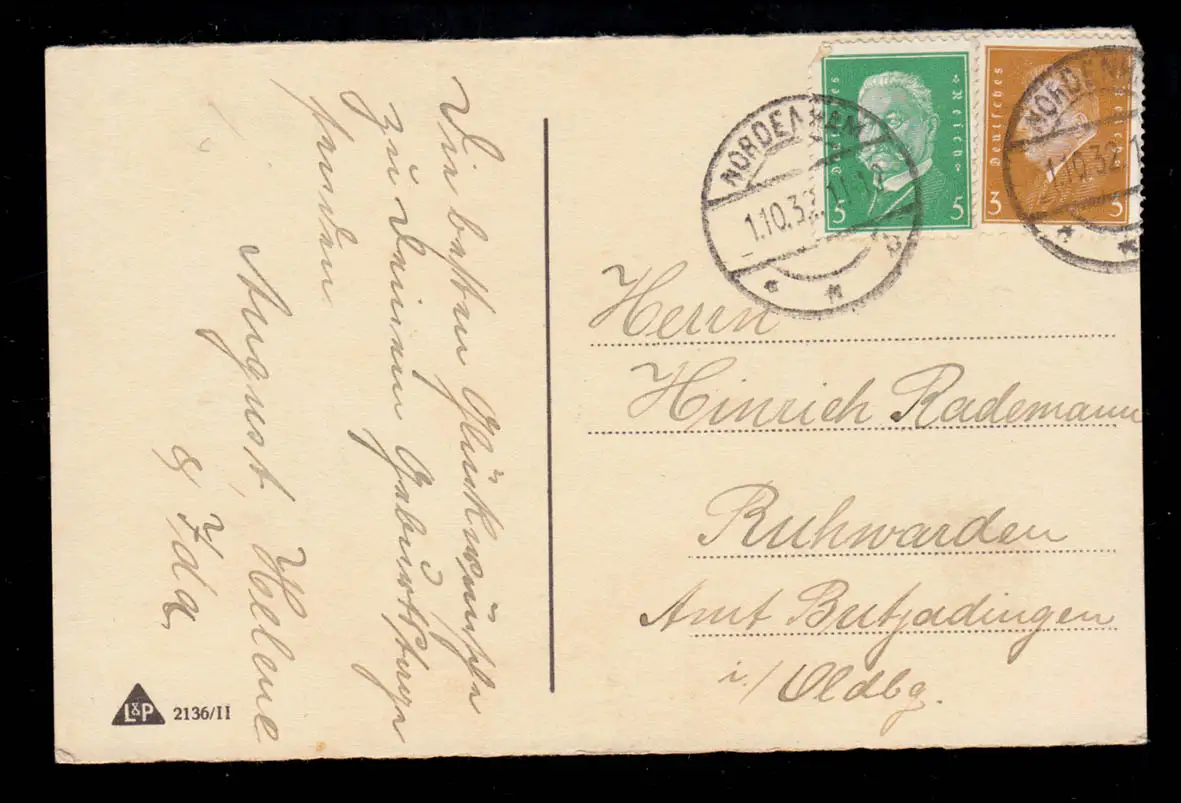 Die besten Glückwünsche
zu Deinem Geburtstage
senden
August, Helene
& Ida.
L&P 2136/II
Deutsches Reich
5 5
Deutsches Reich
3 3
NORDENHAM
1.10.32. 11-12
NORDENHAM
1.10.32
Herrn
Hinrich Rademann
Ruhwarden
Amt Butjadingen
i./ Oldbg.